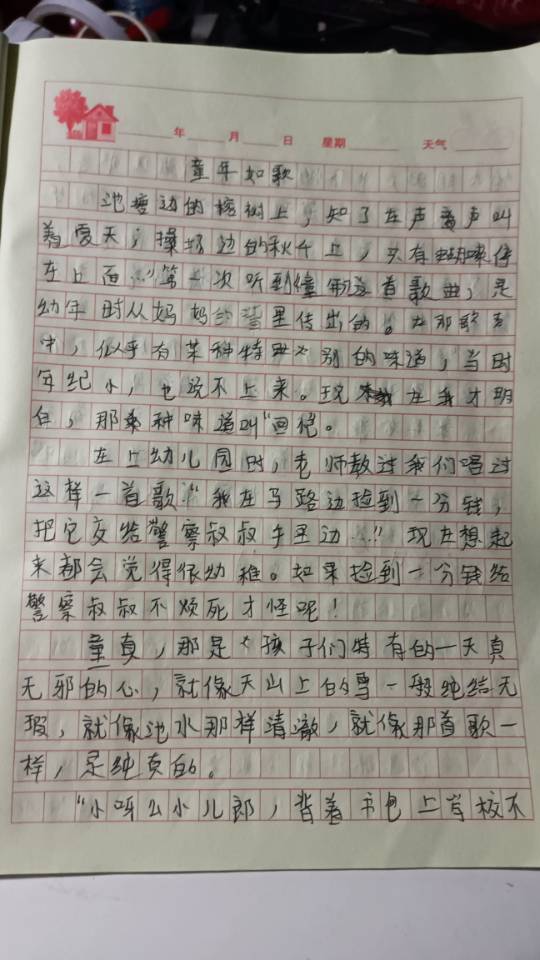 年 月 日 星期 天气
童年如歌
池塘边的榕树上，知了在声声叫
着夏天；操场边的秋千上，只有蝴蝶停
在上面。”第一次听到童年这首歌曲，是
幼年时从妈妈的 里传出的。在那歌声
中，似乎有某种特 别的味道，当时
年纪小，也说不上来。现 在我才明
白，那 种味道叫“回忆。
在上幼儿园时，老师教过我们唱过
这样一首歌“我在马路边捡到一分钱，
把它交给警察叔叔手里边…”现在想起
来都会觉得很幼稚。如果捡到一分钱给
警察叔叔不烦死才怪呢！
童真，那是 孩子们特有的一天真
无邪的心，就像天山上的雪一般纯结无
瑕，就像池水那样清澈，就像那首歌一
样，是纯真的。
“小呀么小儿郎，背着书包上学校不